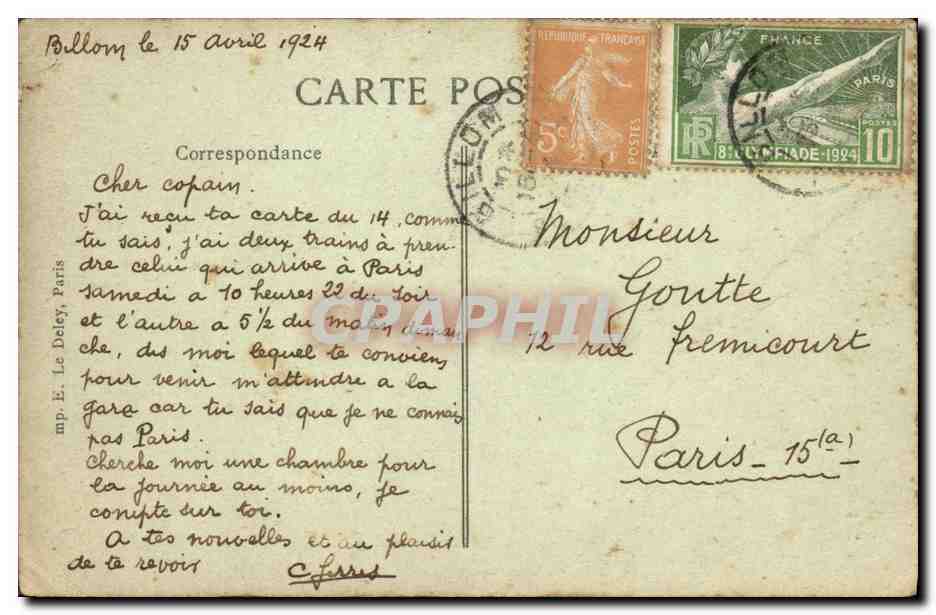 Billom le 15 avril 1924
CARTE POS
Correspondance
REPUBLIQUE FRANÇAISE
5c
POSTES
FRANCE
PARIS
RF
POSTES
8e OLYMPIADE - 1924
10
BILLOM
BILLOM
Cher copain.
J'ai reçu ta carte du 14, comme
tu sais, j'ai deux trains à pren-
dre celui qui arrive à Paris
samedi a 10 heures 22 du soir
et l'autre a 5 1/2 du matin diman
che, dis moi lequel te conviens
pour venir m'attendre a la
gare car tu sais que je ne connais
pas Paris.
Cherche moi une chambre pour
la journée au moins, je
compte sur toi.
A tes nouvelles et au plaisir
de te revoir
Monsieur
Goutte
12 rue fremicourt
Paris - 15 (a)
mp. E. Le Deley, Paris
CPAPHIL